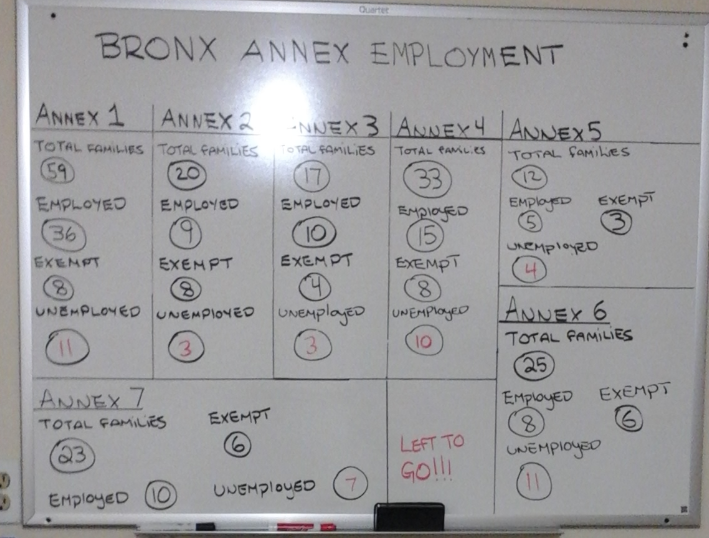 Quartet
BRONX ANNEX EMPLOYMENT
ANNEX 1
TOTAL FAMILIES
59
EMPLOYED
36
EXEMPT
8
UNEMPLOYED
11
ANNEX 2
TOTAL FAMILIES
20
EMPLOYED
9
EXEMPT
8
UNEMPLOYED
3
ANNEX 3
TOTAL FAMILIES
17
EMPLOYED
10
EXEMPT
4
UNEMPLOYED
3
ANNEX 4
TOTAL FAMILIES
33
EMPLOYED
15
EXEMPT
8
UNEMPLOYED
10
ANNEX 5
TOTAL FAMILIES
12
EMPLOYED
5
EXEMPT
3
UNEMPLOYED
4
ANNEX 6
TOTAL FAMILIES
25
EMPLOYED
8
EXEMPT
6
UNEMPLOYED
11
ANNEX 7
TOTAL FAMILIES
23
EXEMPT
6
EMPLOYED 10
UNEMPLOYED 7
LEFT TO
GO!!!